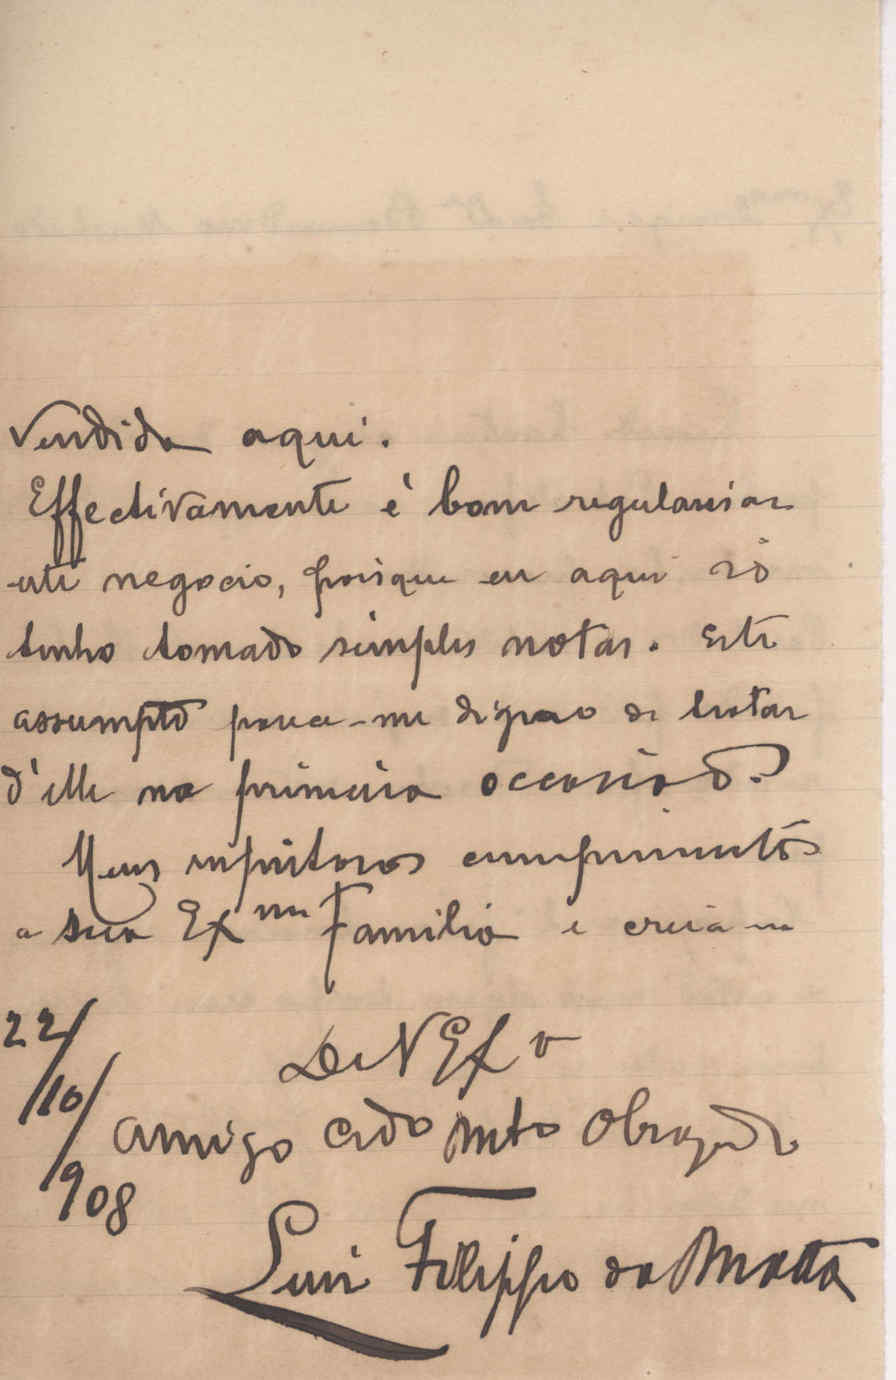 vendida aqui.
Effectivamente é bom regularisar
este negocio, porisque eu aqui só
tenho tomado simples notas. Este
assumpto parece-me digno de tratar
d'elle na primeira occasião.
Meus respeitosos cumprimentos
a sua Exma Familia e creia-me
De V Exa
22/10/908
amigo crdo mto obrigado
Luiz Filippe da Matta